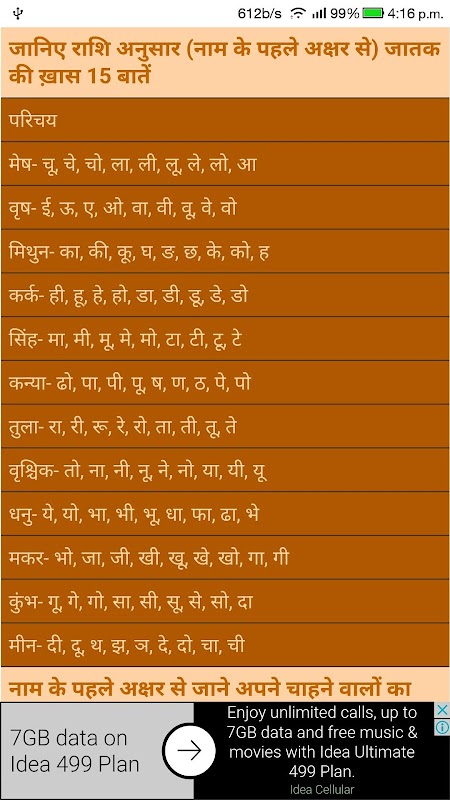 612b/s 99% 4:16 p.m.
जानिए राशि अनुसार (नाम के पहले अक्षर से) जातक
की ख़ास 15 बातें
परिचय
मेष- चू, चे, चो, ला, ली, लू, ले, लो, आ
वृष- ई, ऊ, ए, ओ, वा, वी, वू, वे, वो
मिथुन- का, की, कू, घ, ङ, छ, के, को, ह
कर्क- ही, हू, हे, हो, डा, डी, डू, डे, डो
सिंह- मा, मी, मू, मे, मो, टा, टी, टू, टे
कन्या- ढो, पा, पी, पू, ष, ण, ठ, पे, पो
तुला- रा, री, रू, रे, रो, ता, ती, तू, ते
वृश्चिक- तो, ना, नी, नू, ने, नो, या, यी, यू
धनु- ये, यो, भा, भी, भू, धा, फा, ढा, भे
मकर- भो, जा, जी, खी, खू, खे, खो, गा, गी
कुंभ- गू, गे, गो, सा, सी, सू, से, सो, दा
मीन- दी, दू, थ, झ, ञ, दे, दो, चा, ची
नाम के पहले अक्षर से जाने अपने चाहने वालों का
7GB data on
Idea 499 Plan
Enjoy unlimited calls, up to
7GB data and free music &
movies with Idea Ultimate
499 Plan.
Idea Cellular